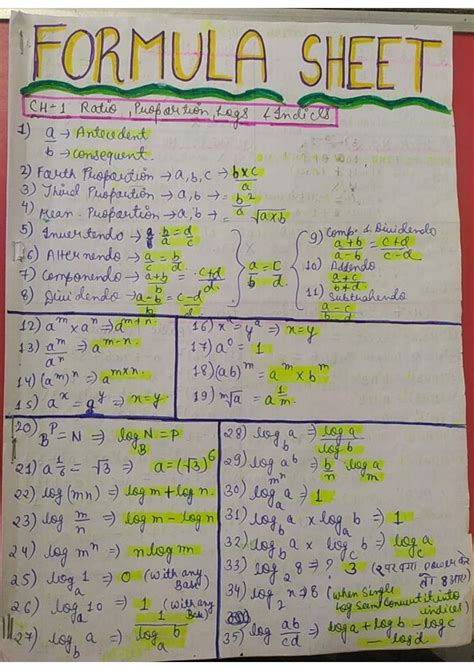 FORMULA SHEET
CH-1 Ratio, Proportion, Logs & Indices
1) a → Antecedent
b → consequent
2) Forth Propostion → a, b, c → b×c/a
3) Third Propostion → a, b → = b²/a
4) Mean Propostion → a, b → = √a×b
5) Invertendo → b/a = d/c
6) Alternendo → a/c = b/d
7) Componendo → a+b/b = c+d/d
8) Dividendo → a-b/b = c-d/d
} a/b = c/d {
9) Comp. & Dividendo
a+b/a-b = c+d/c-d
10) Addendo
a+c/b+d
11) Subtrahendo
a-c/b-d
12) aᵐ × aⁿ ⇒ aᵐ⁺ⁿ
13) aᵐ/aⁿ ⇒ aᵐ⁻ⁿ
14) (aᵐ)ⁿ ⇒ aᵐˣⁿ
15) aˣ = aʸ ⇒ x=y
16) xᵃ = yᵃ ⇒ x=y
17) a⁰ = 1
18) (ab)ᵐ = aᵐ × bᵐ
19) ᵐ√a = a^1/m
20) Bᴾ = N ⇒ log_B N = P
21) a^1/6 = √3 ⇒ a = (√3)⁶
22) log (mn) ⇒ log m + log n
23) log m/n ⇒ log m - log n
24) log mⁿ ⇒ n log m
25) log_a 1 ⇒ 0 (with any Base)
26) log_10 10 ⇒ 1 (with any Base)
27) log_b a ⇒ 1/log_a b
28) log_b a ⇒ log a/log b
30) log_a a ⇒ 1
31) log_b a × log_a b ⇒ 1
32) log_b a × log_c b ⇒ log_c a
33) log_2 8 ⇒ ? 3 (2 पर क्या power करे तो 8 आए)
35) log ab/cd ⇒ log a + log b - log c - log d